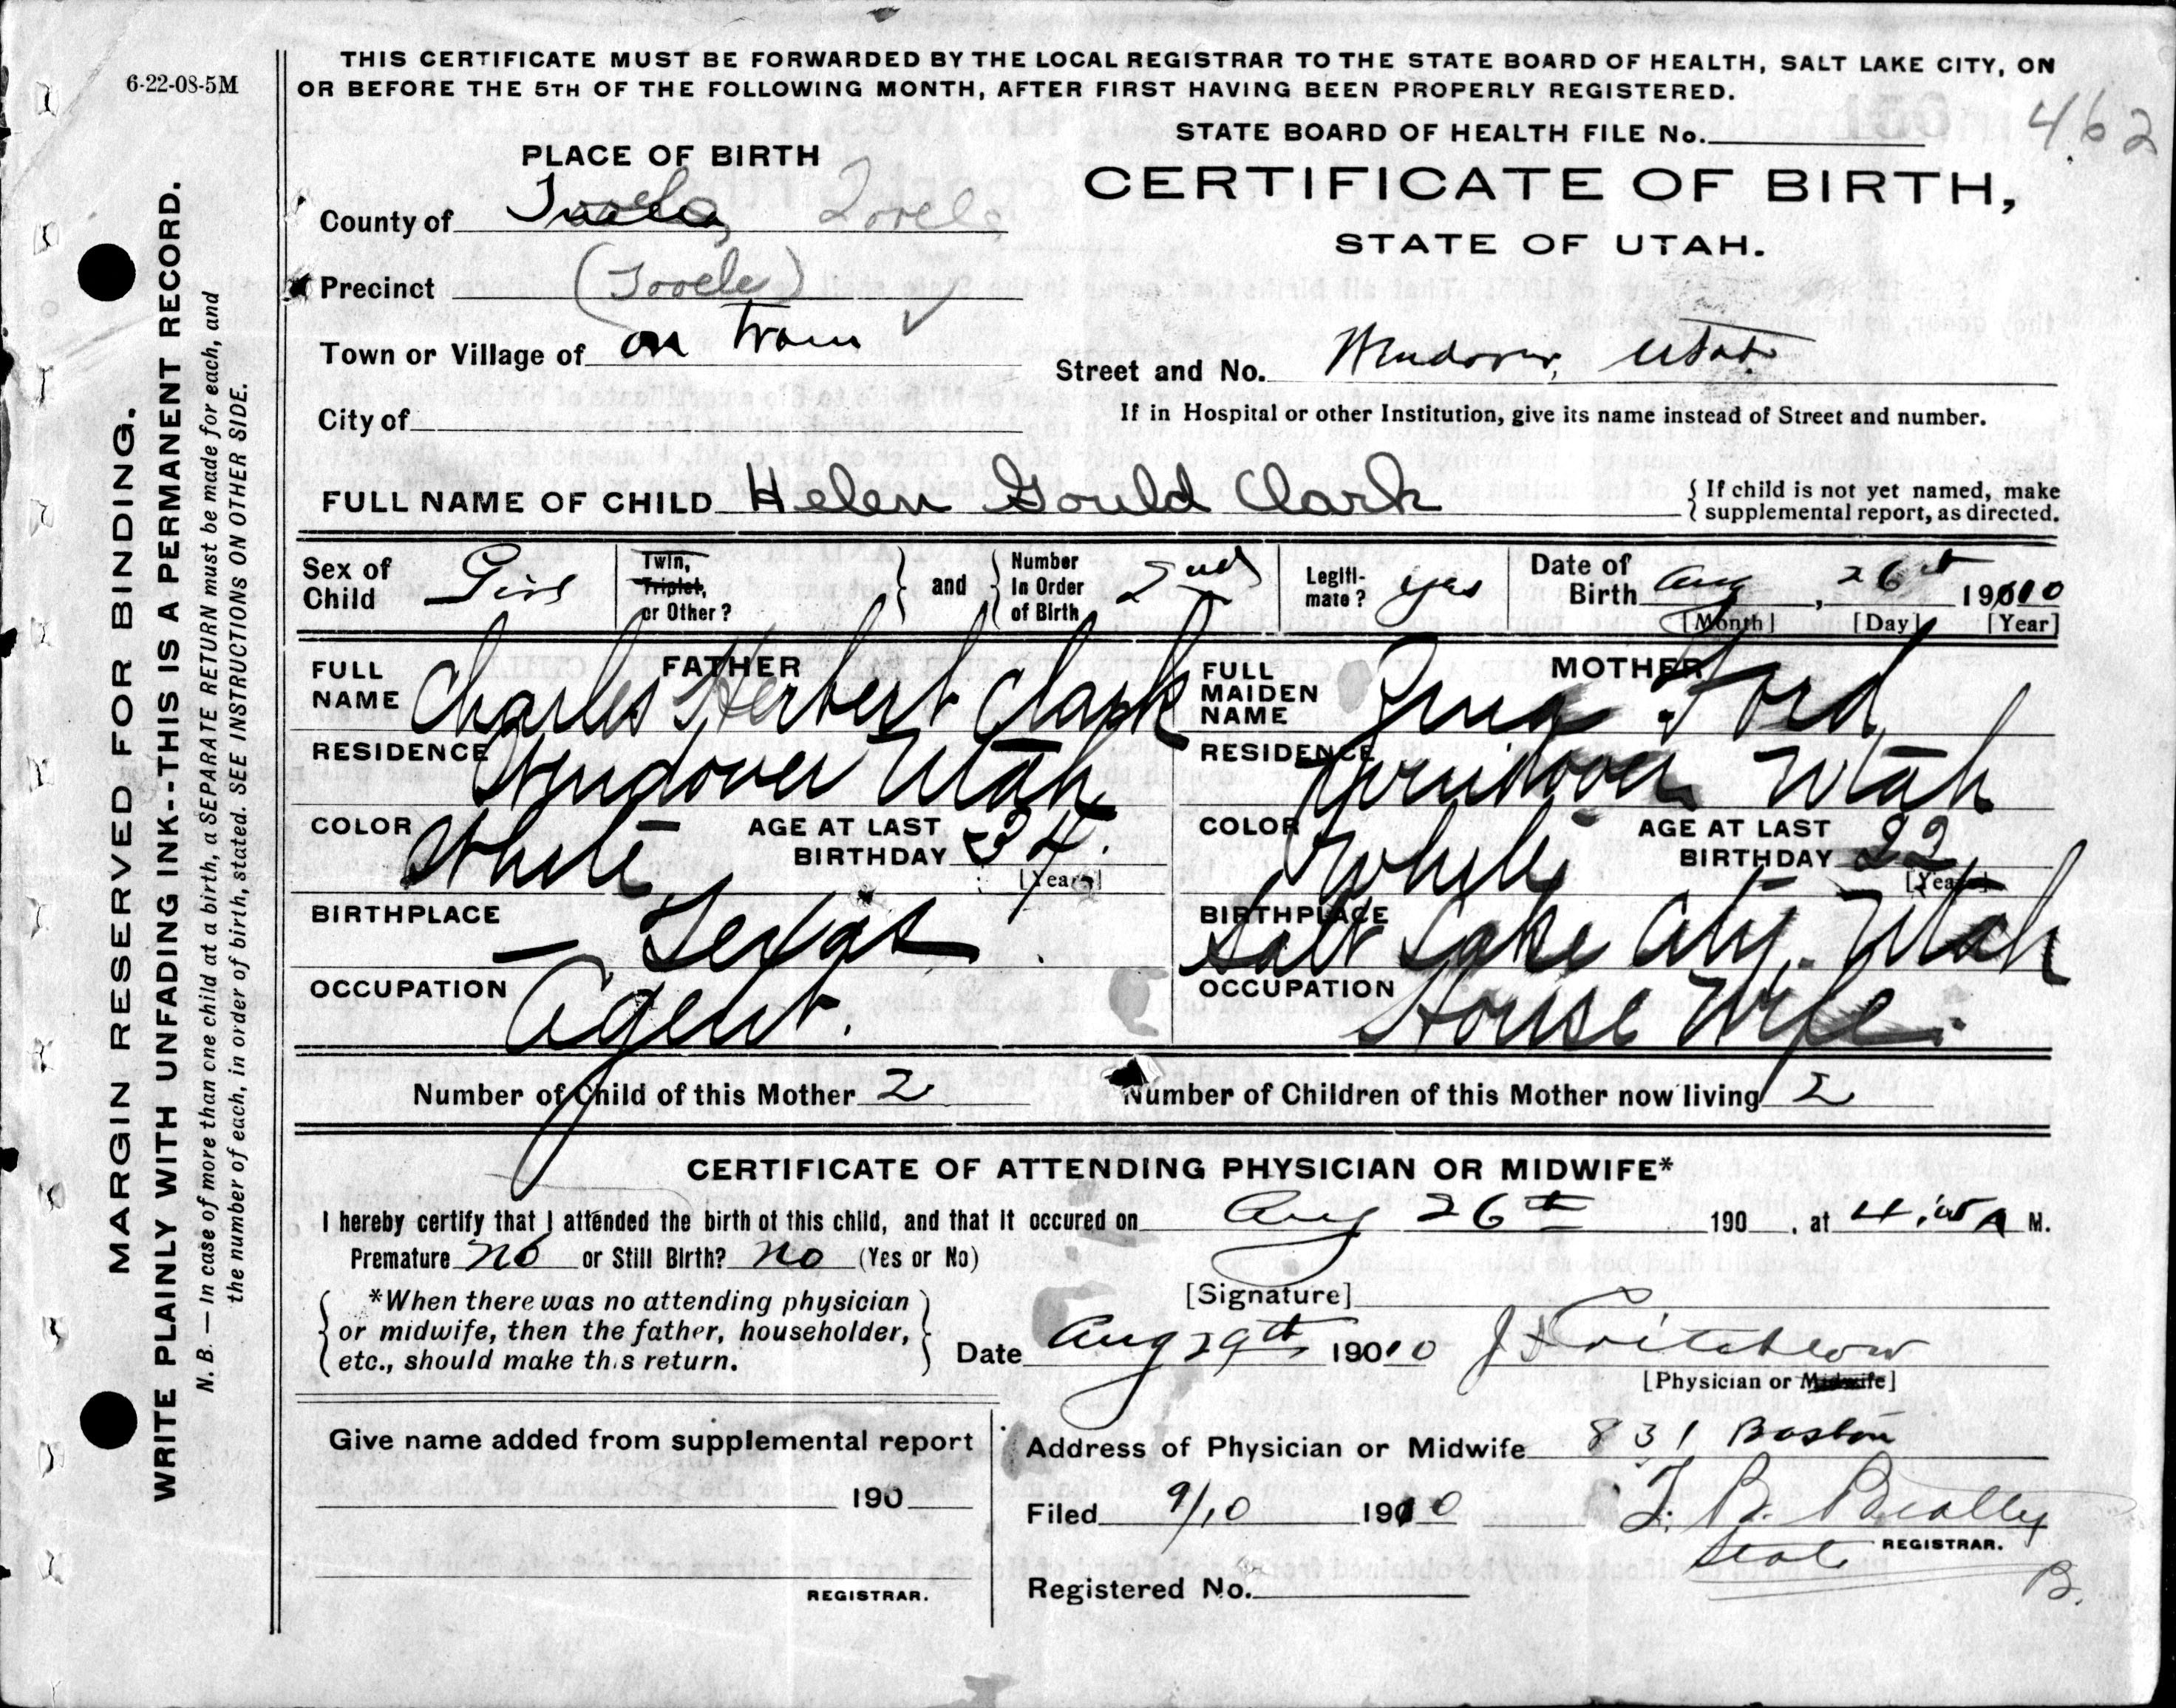 6-22-08-5M
THIS CERTIFICATE MUST BE FORWARDED BY THE LOCAL REGISTRAR TO THE STATE BOARD OF HEALTH, SALT LAKE CITY, ON
OR BEFORE THE 5TH OF THE FOLLOWING MONTH, AFTER FIRST HAVING BEEN PROPERLY REGISTERED.
STATE BOARD OF HEALTH FILE No. 462
PLACE OF BIRTH
CERTIFICATE OF BIRTH,
STATE OF UTAH.
County of Tooele, Tooele
Precinct (Tooele)
Town or Village of on Train
Street and No. Wendover, Utah
City of
If in Hospital or other Institution, give its name instead of Street and number.
FULL NAME OF CHILD Helen Gould Clark
If child is not yet named, make
supplemental report, as directed.
Sex of Child Girl
Twin, Triplet, or Other?
and
Number In Order of Birth 2nd
Legitimate? yes
Date of Birth Aug, 26th 1910
[Month] [Day] [Year]
FATHER
FULL NAME Charles Herbert Clark
RESIDENCE Wendover Utah
COLOR White
AGE AT LAST BIRTHDAY 34.
[Years]
BIRTHPLACE Texas
OCCUPATION Agent.
MOTHER
FULL MAIDEN NAME Ford
RESIDENCE Wendover Utah
COLOR White
AGE AT LAST BIRTHDAY 22
[Years]
BIRTHPLACE Salt Lake City. Utah
OCCUPATION House Wife.
Number of Child of this Mother 2
Number of Children of this Mother now living 2
CERTIFICATE OF ATTENDING PHYSICIAN OR MIDWIFE*
I hereby certify that I attended the birth of this child, and that it occured on Aug 26th 190 , at 4 A M.
Premature no or Still Birth? no (Yes or No)
*When there was no attending physician
or midwife, then the father, householder,
etc., should make this return.
[Signature]
Date Aug 29th 1910 Critchlow
[Physician or Midwife]
Give name added from supplemental report
190
REGISTRAR.
Address of Physician or Midwife 831 Boston
Filed 9/10 1910 T. B. Beatty
State REGISTRAR.
B.
Registered No.
MARGIN RESERVED FOR BINDING.
WRITE PLAINLY WITH UNFADING INK--THIS IS A PERMANENT RECORD.
N. B. — In case of more than one child at a birth, a SEPARATE RETURN must be made for each, and
the number of each, in order of birth, stated. SEE INSTRUCTIONS ON OTHER SIDE.